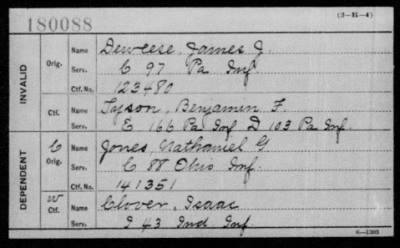 180088
(3-81-4)
INVALID
Orig.
Name Deweese, James J.
Serv. C 97 Pa Inf
Ctf. No. 123480
Ctf.
Name Tyson, Benjamin F.
Serv. E 166 Pa Inf D 103 Pa Inf.
DEPENDENT
C
Orig.
Name Jones, Nathaniel G
Serv. C 88 Ohio Inf.
Ctf. No. 141351
W
Ctf.
Name Clover, Isaac
Serv. I 43 Ind Inf
6-1303